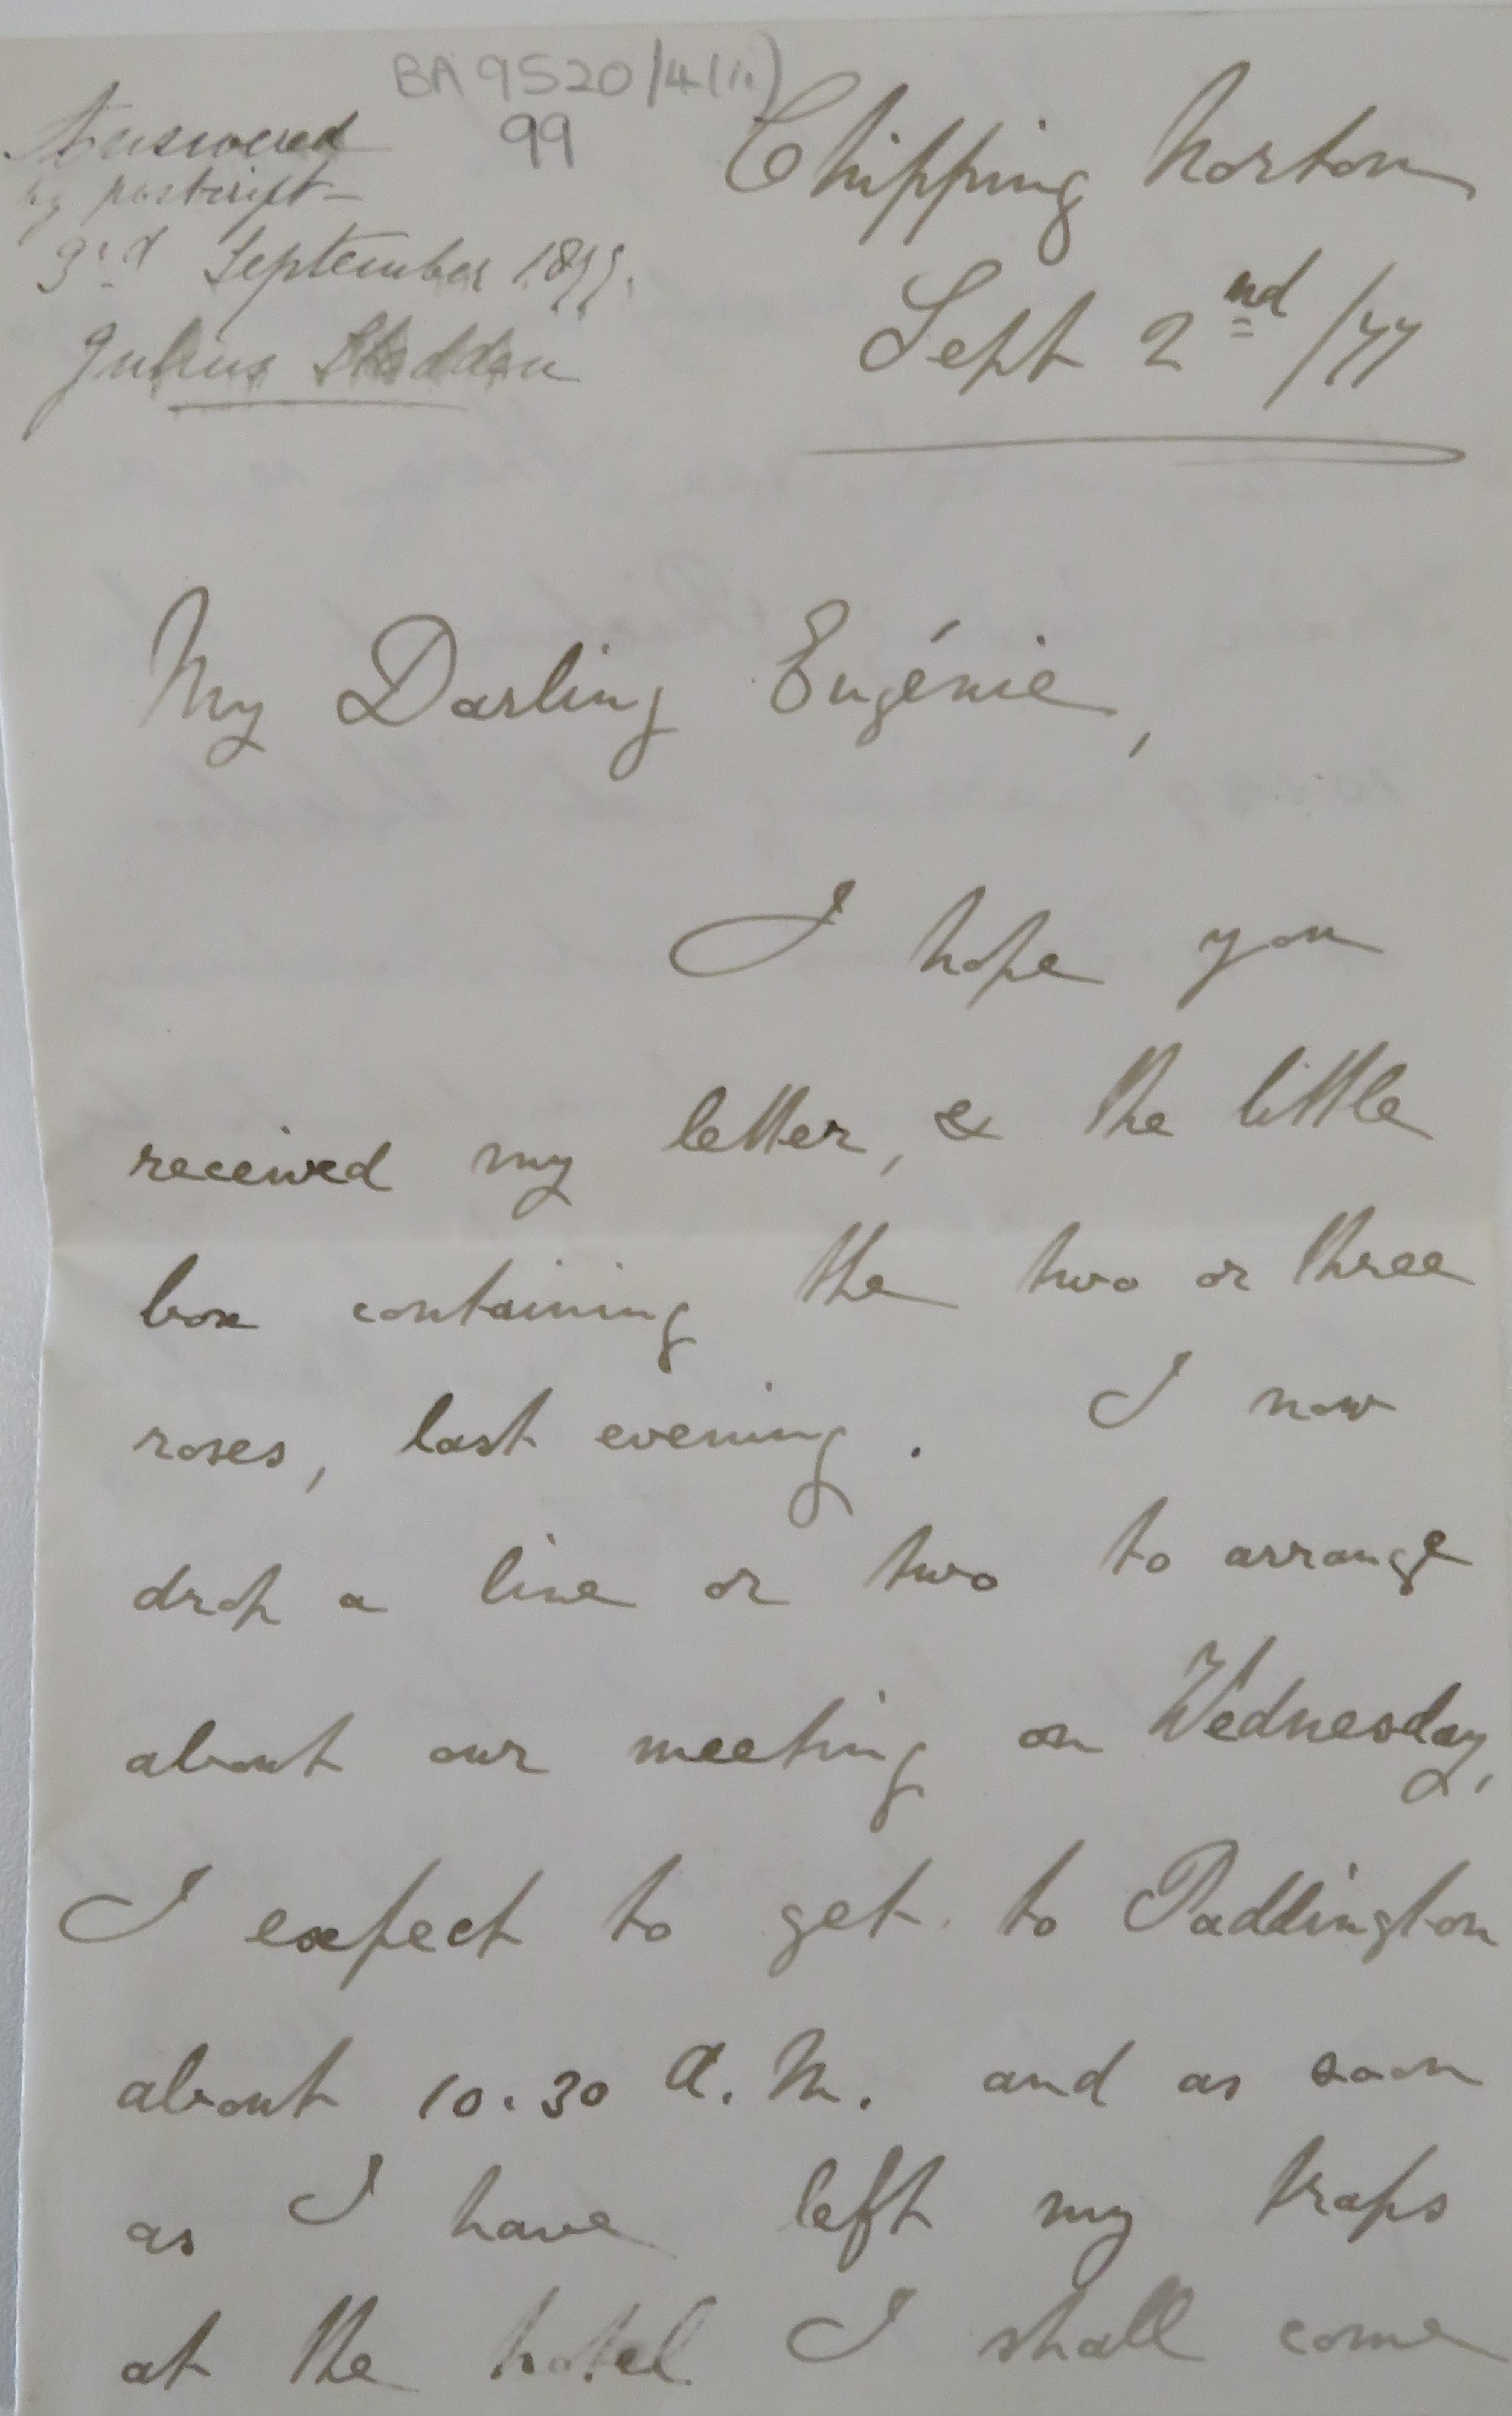 BA 9520/4(ii)
99
Answered
by postcript
3rd September 1877.
Julius Sladden
Chipping Norton
Sept 2nd /77
My Darling Eugénie,
I hope you
received my letter, & the little
box containing the two or three
roses, last evening. I now
drop a line or two to arrange
about our meeting on Wednesday,
I expect to get to Paddington
about 10.30 A.M. and as soon
as I have left my traps
at the hotel I shall come